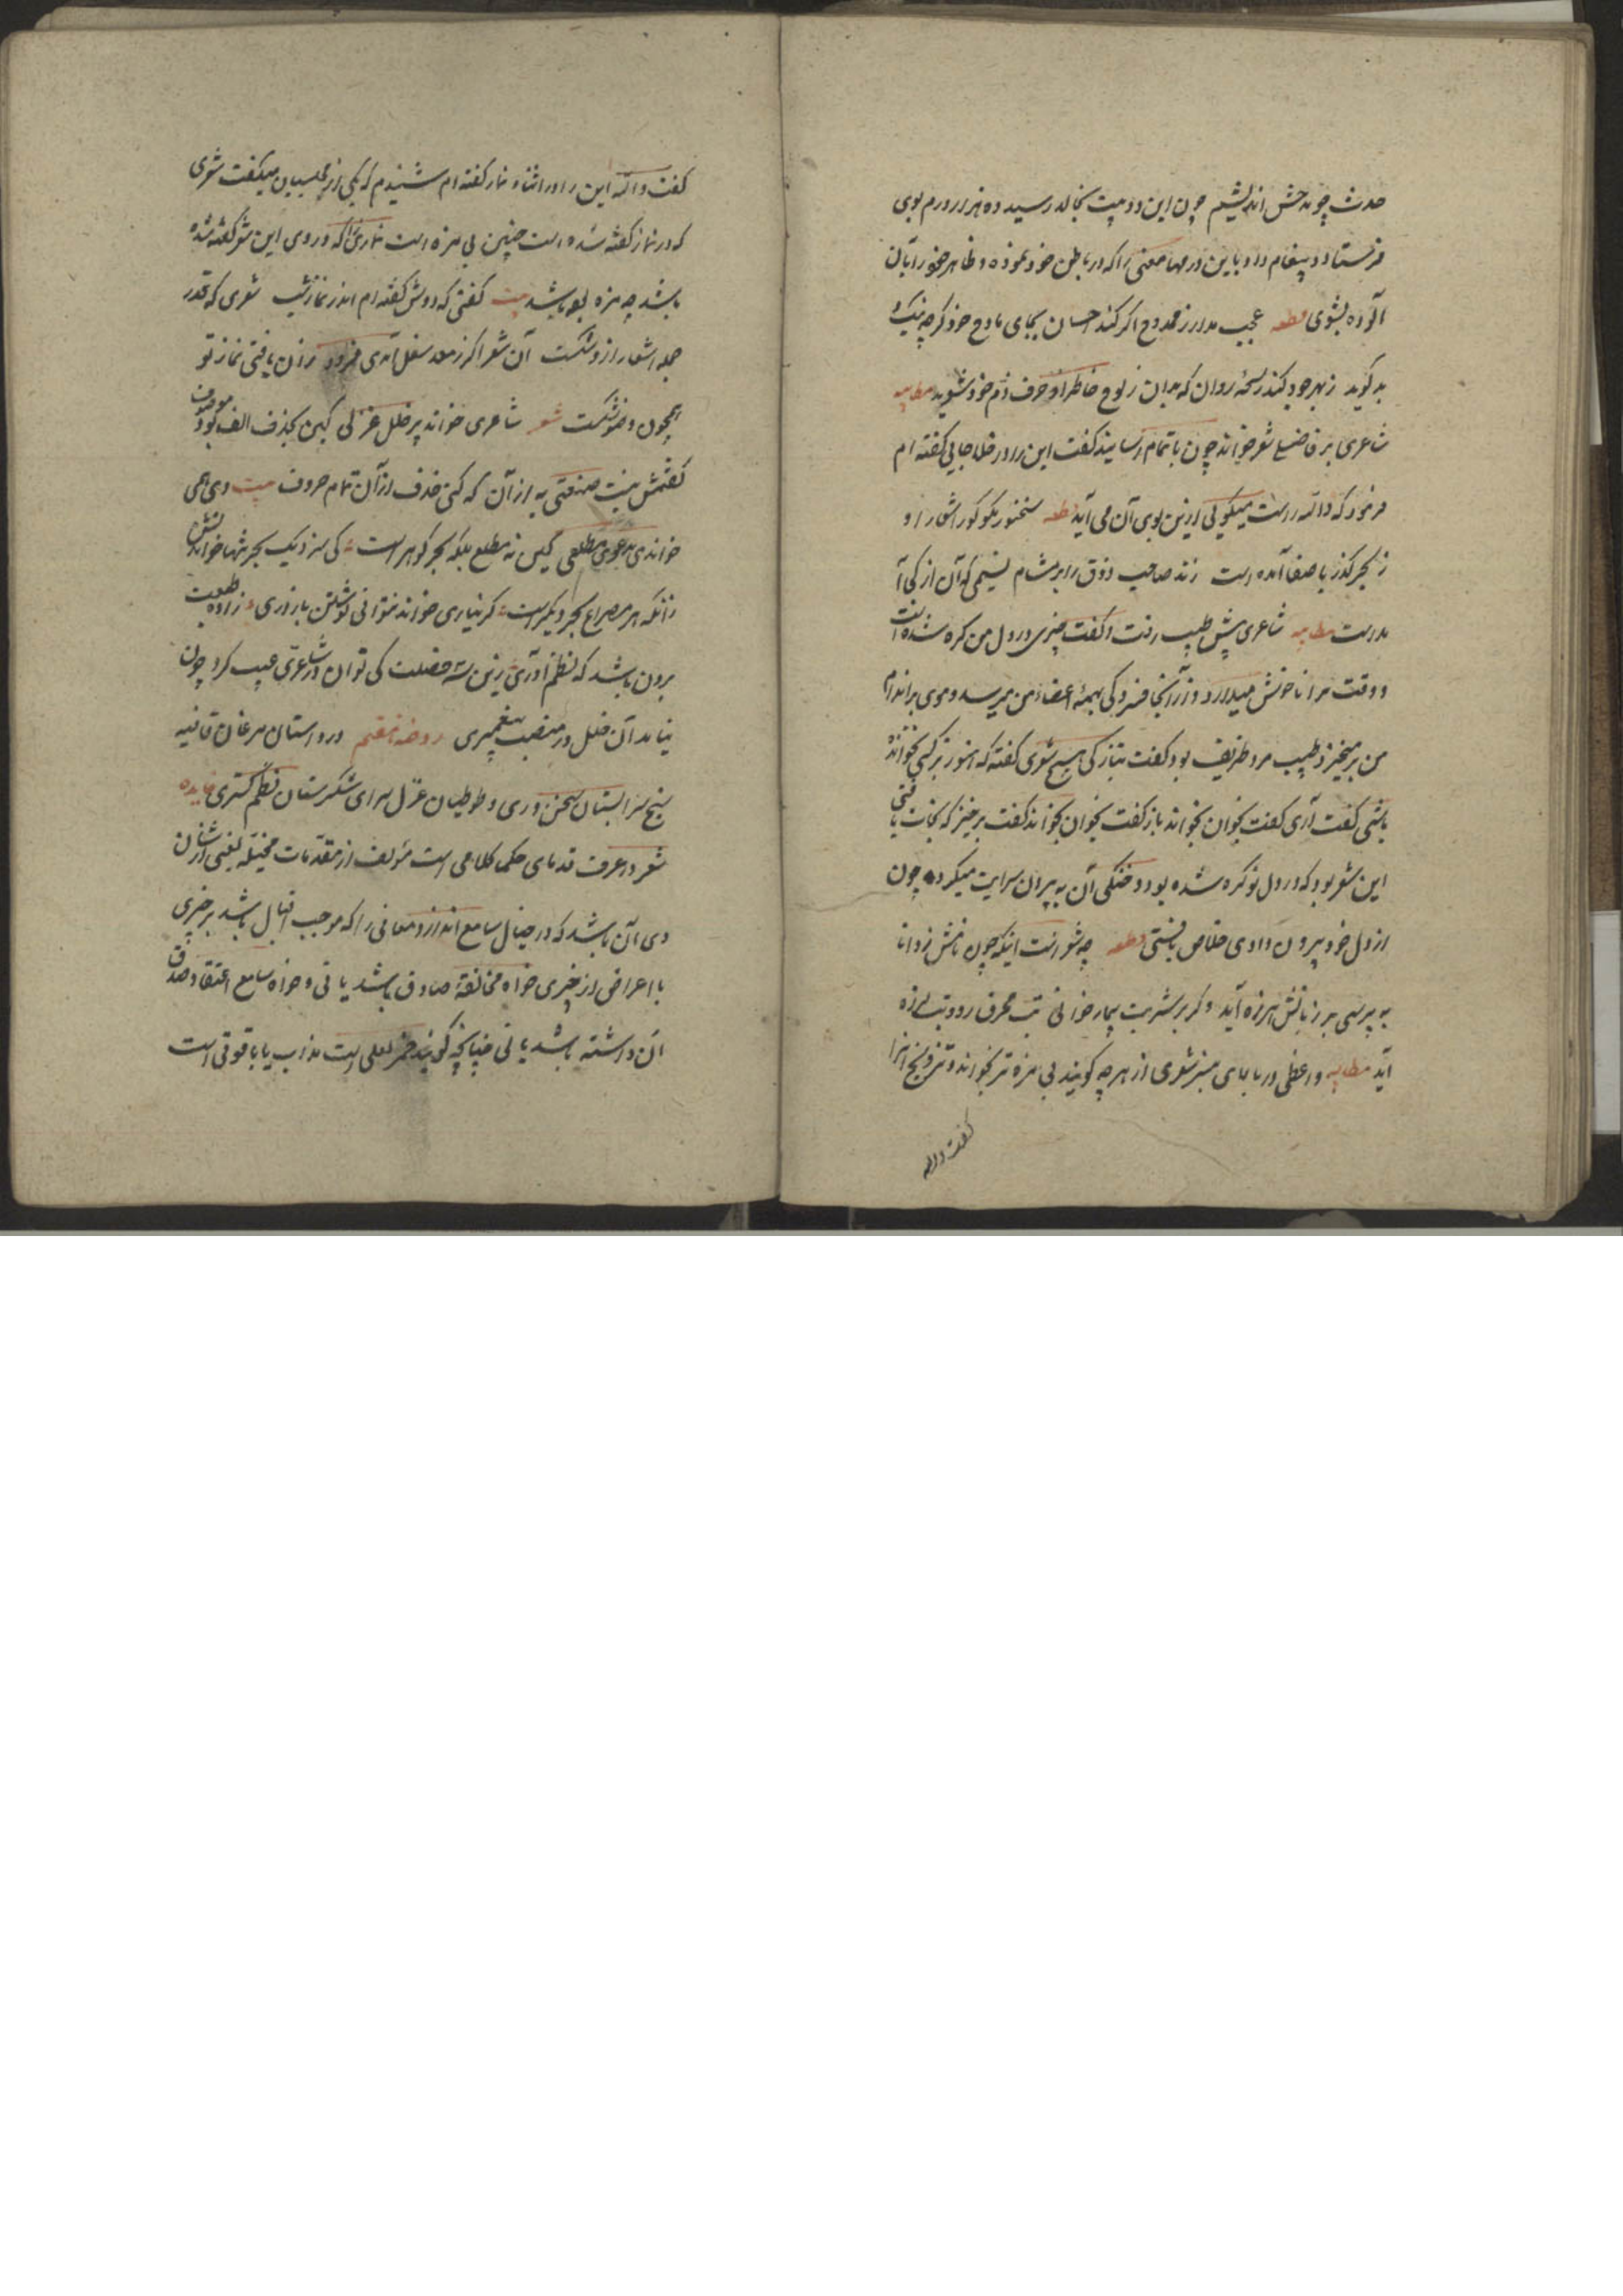 حدث چو بدحش اندیشیم چون این دو بیت بخالد رسید ده هزار درم بوی
فرستاد و پیغام داد باین درمها معنی را که در باطن خود نموده و ظاهر خود را بآن
آلوده بشوی قطعه عجب مدار ز ممدوح اگر کند احسان بجای مادح خود گرچه نیک و
بد گوید ز بهر جود کند رشحهٔ روان که بدان ز لوح خاطر او حرف ذم خود شوید مطایبه
شاعری بر فاضلی شعر خواند چون باتمام رسانید گفت این را در خلا جایی گفته ام
فرمود که والله راست میگویی ازین بوی آن می آید قطعه سخنور بگو کور اشعار او
ز بحر کذر با صفا آمده است زند صاحب ذوق را بر مشام نسیمی که آن از کجا آ
مدست مطایبه شاعری پیش طبیب رفت و گفت چیزی در دل من گره شده است
و وقت مرا ناخوش میدارد و از آنجا فسردگی بهمهٔ اعضاء من میرسد و موی بر اندام
من بر میخیزد طبیب مرد ظریف بود گفت بتازگی هیچ شعری گفته که هنوز بر کسی نخوانده
باشی گفت آری گفت بخوان بخواند باز گفت بخوان بخواند گفت برخیز که نجات یافتی
این شعر بود که در دل تو گره شده بود و خنکی آن به بیرون سرایت میکرد چون
از دل خود بیرون دادی خلاص یافتی قطعه چه شعرست اینکه چون نامش ز دانا
به پرسی بر زبانش هرزه آید وگر بر شربت بیمار خوانی تب محرق رود تب لرزه
آید مطایبه واعظی در بالای منبر شعری از هر چه گویند بی مزه تر بخواند و ترویج آنرا
گفت والله
گفت والله این را در اثناء نماز گفته ام شنیدم که یکی از مجلسیان میگفت شعری
که در نماز گفته شده است چنین بی مزه است نمازی که در وی این شعر گفته شده
باشد چه مزه بوده باشد بیت گفتی که دوش گفته ام اندر نماز شب شعری که قدر
جمله اشعار ازو شکست آن شعر اگر ز معد سفل آمدی فرود زان یافتی نماز تو
همچون وضو شکست شعر شاعری خواند پر خلل غزلی کین بحذف الف بود موصوف
گفتمش نیست صنعتی به از آن که کنی حذف از آن تمام حروف بیت دی همی
خواندی بدعوی مطلعی کین نه مطلع بلکه بحر گوهر است کی سزد یک بحر تنها خواندنش
زانکه هر مصراع بحر دیگر است گر نیاری خواند نتوانی گوشتن باز زری زاده طبعت
برون باشد که نظم آوری زین سه خصلت کی توان در شاعری عیب کرد چون
نیامد آن خلل در منصب پیغمبری روضه هفتم در داستان مرغان قافیه
سنج سرابستان سخن وری و طوطیان غزل سرای شکرستان نظم گستری فایده
شعر در عرف قدمای حکما کلامی است مؤلف از مقدمات مخیله یعنی از شان
وی آن باشد که در خیال سامع اندازد معانی را که موجب اقبال باشد بر چیزی
یا اعراض از چیزی خواه مخالفة صادق باشد یا نی و خواه سامع اعتقاد صدق
آن داشته باشد یا نی چنانچه گویند خمر لعلی است مذاب یا یاقوتی است